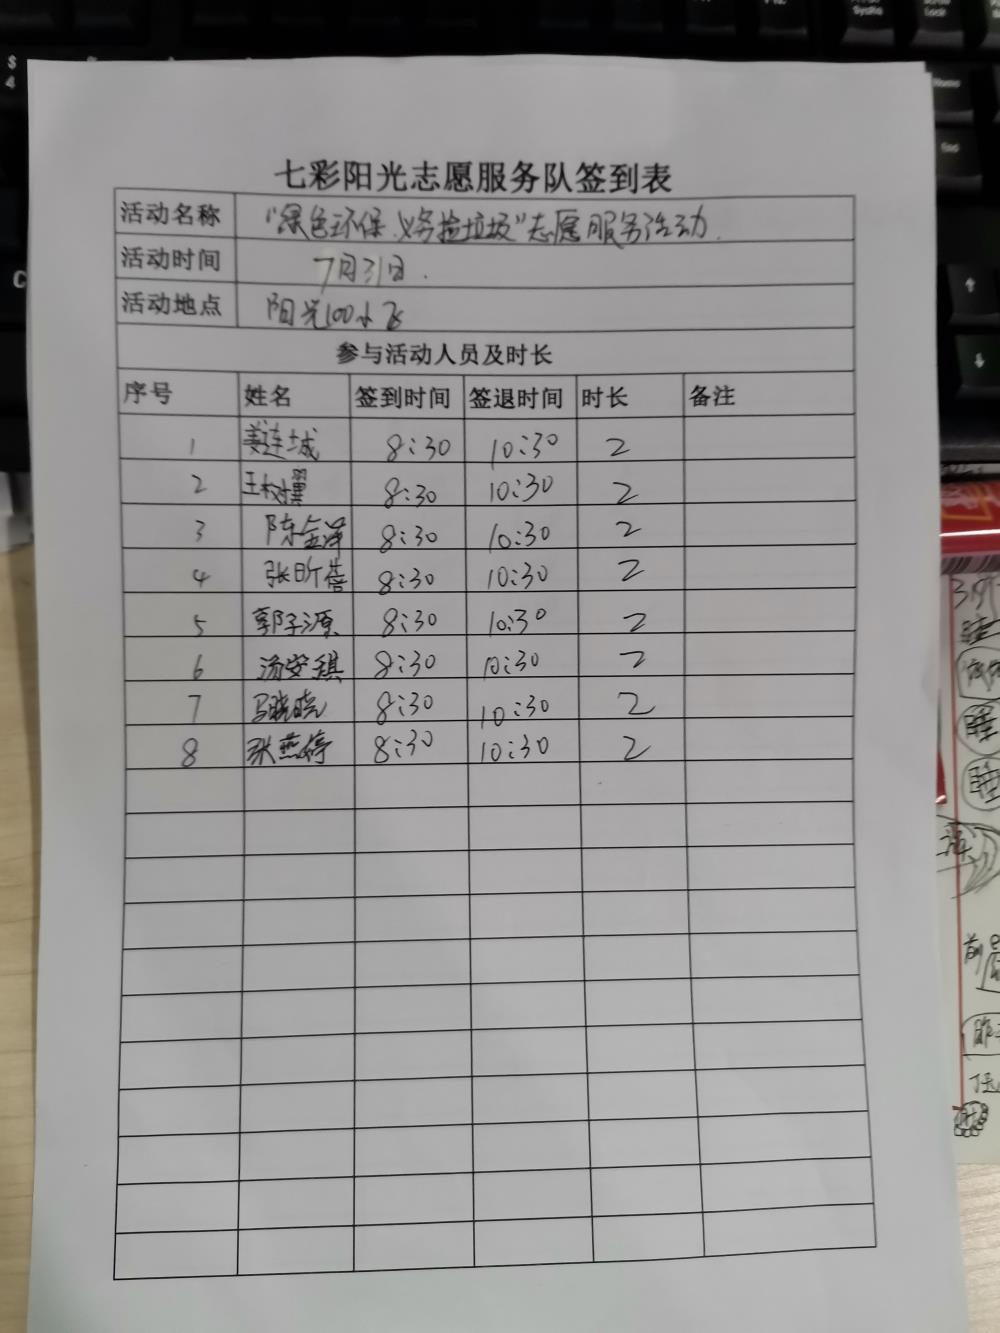 七彩阳光志愿服务队签到表
活动名称 "绿色环保、义务捡垃圾"志愿服务活动.
活动时间 7月31日.
活动地点 阳光100小飞
参与活动人员及时长
序号 姓名 签到时间 签退时间 时长 备注
1 姜连城 8:30 10:30 2
2 王树翼 8:30 10:30 2
3 陈金泽 8:30 10:30 2
4 张昕蓓 8:30 10:30 2
5 郭子源 8:30 10:30 2
6 汤安琪 8:30 10:30 2
7 马晓晓 8:30 10:30 2
8 张燕婷 8:30 10:30 2